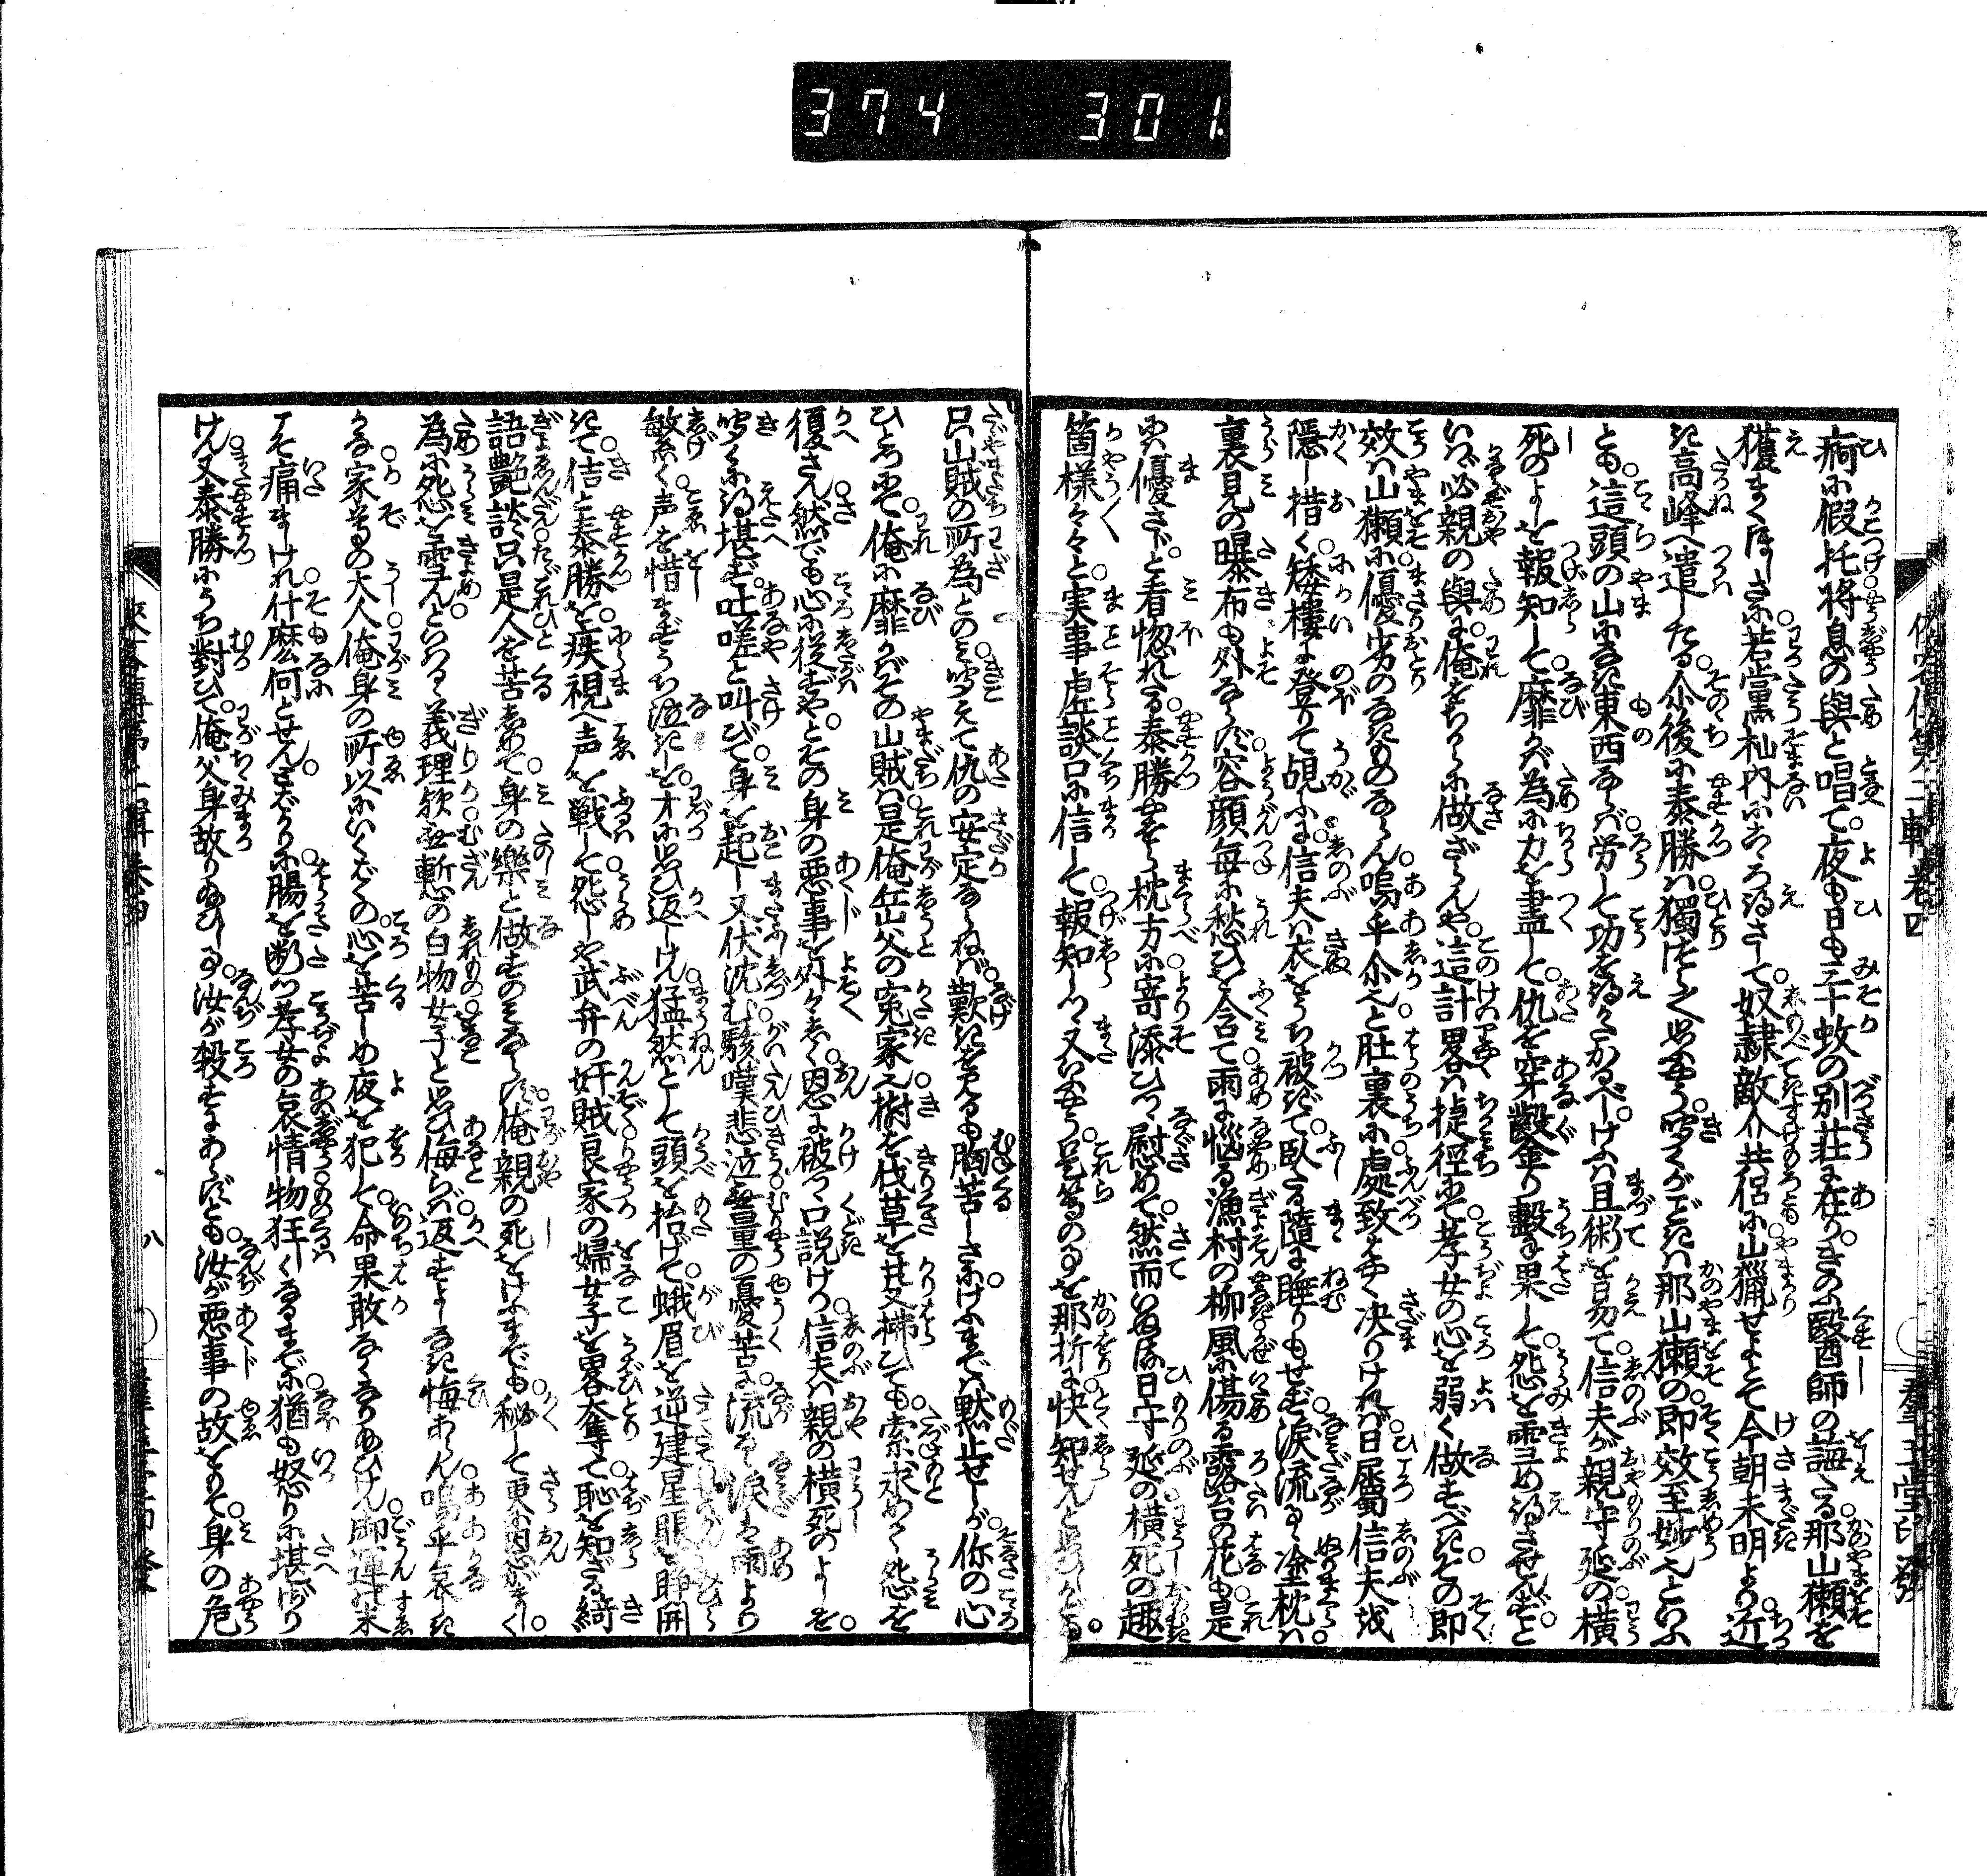 374 301
痾に假托将息の與と唱て夜も日も三十蚊の別荘に在りきのふ毉師の誨たる那山獺を
獲まくほしさに若黨杣内にこゝろ得さして奴隷敵介共侶に山獵せよとて今朝未明より近
き高峰へ遣したる尒後に泰勝は獨つく〳〵思ふやう聞くがごときは那山獺の即效至妙といふ
とも這頭の山になき東西ならば労して功を得がたかるべしけふは且術を易て信夫が親守延の横
死のよしを報知して靡かば為に力を盡して仇を穿鑿り撃も果して怨を雪め得させんず
といはゞ必親の與に俺をちからに做ざらんや這計畧は捷徑にて孝女の心を弱く做すべきその即
效は山獺に優劣のなきものならん嗚乎尒也と肚裏に處致はやく决りければ日属信夫を
隠し措く矮樓に登りて覘ふに信夫は衣をうち被ぎて臥たる隨に睡りもせず涙流るゝ塗枕は
裏見の曝布も外ならぬ容顔毎に愁ひを含て雨に悩る漁村の柳風に傷る露台の花も是
には優さじと看惚れたる泰勝やをら枕方に寄添ひつゝ慰めて然而いぬる日守延の横死の趣
箇様々々と実事虚談口に信して報知しつ又いふやう是等のことを那折に快知せんと思ひしかども
只山賊の所為とのみ聞えて仇の安定ならねば歎きを見るも胸苦しさにけふまでは黙止せしが你の心
ひとつにて俺に靡かばその山賊は是俺岳父の寃家也樹を伐草を芟拂ひても索求めて怨を
復さん然でも心に従ずやとその身の悪事を外々しく恩に被つゝ口説けり信夫は親の横死のよしを
聞くに得堪ず吐嗟と叫びて身を起し又伏沈む駭嘆悲泣無量の憂苦に流るゝ涙は雨より
繁く声を惜まずうち泣きしをわづかに思ひ返しけん猛然として頭を抬げて蛾眉を逆建星眼を睜開
きて佶と泰勝を疾視へ声を戦して怨しや武弁の奸賊良家の婦女子を畧奪て恥を知ざる綺
語艶談只是人を苦しめて身の樂と做すのみならず俺親の死をけふまでも秘して更に恩がましく
為に怨を雪んといはるゝ義理欤無慙の白物女子と思ひ侮らば返すよしなき悔あらん嗚乎哀き
かな家尊の大人俺身の所以にいくばくの心を苦しめ夜を犯して命果敢なくなりたまひけん御運の末
こそ痛ましけれ什麽何とせんとばかりに腸を断つ孝女の哀情物狂しくなるまでに猶も怒りに堪ざり
けん又泰勝にうち對ひて俺父身故りたまひしは汝が殺すにあらずとも汝が悪事の故をもて身の危
八